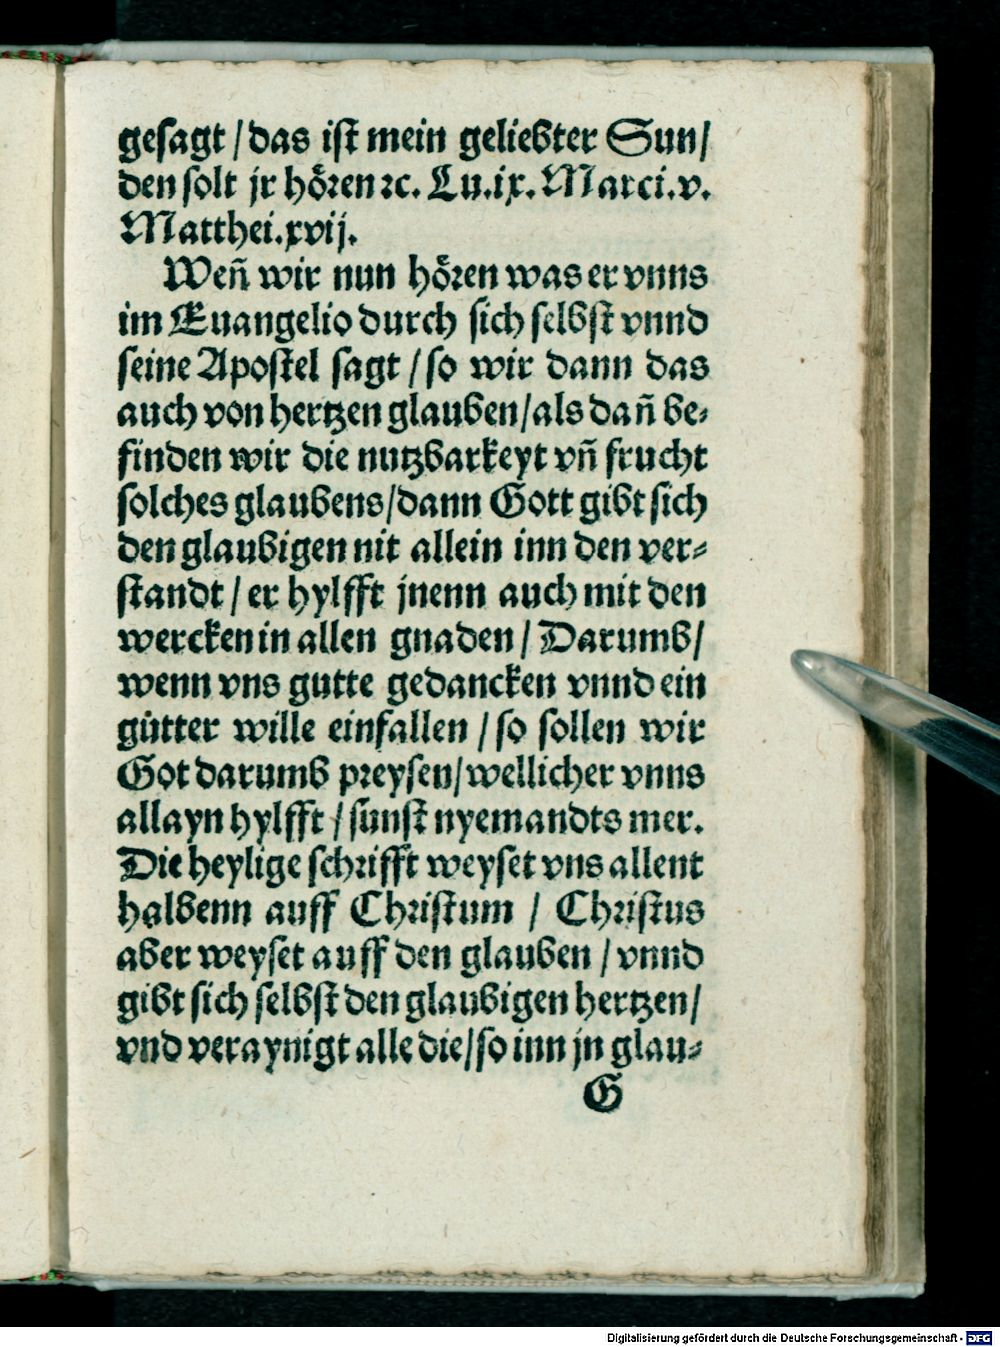 gesagt / das ist mein geliebter Sun /
den solt jr hoͤren ⁊c. Lu.ix. Marci.v.
Matthei.xvij.
Weñ wir nun hoͤren was er vnns
im Euangelio durch sich selbst vnnd
seine Apostel sagt / so wir dann das
auch von hertzen glauben / als dañ be⸗
finden wir die nutzbarkeyt vñ frucht
solches glaubens / dann Gott gibt sich
den glaubigen nit allein inn den ver⸗
standt / er hylfft jnenn auch mit den
wercken in allen gnaden / Darumb /
wenn vns gutte gedancken vnnd ein
guͤtter wille einfallen / so sollen wir
Got darumb preysen / wellicher vnns
allayn hylfft / sunst nyemandts mer.
Die heylige schrifft weyset vns allent
halbenn auff Christum / Christus
aber weyset auff den glauben / vnnd
gibt sich selbst den glaubigen hertzen /
vnd veraynigt alle die / so inn jn glau⸗
G
Digitalisierung gefördert durch die Deutsche Forschungsgemeinschaft - DFG